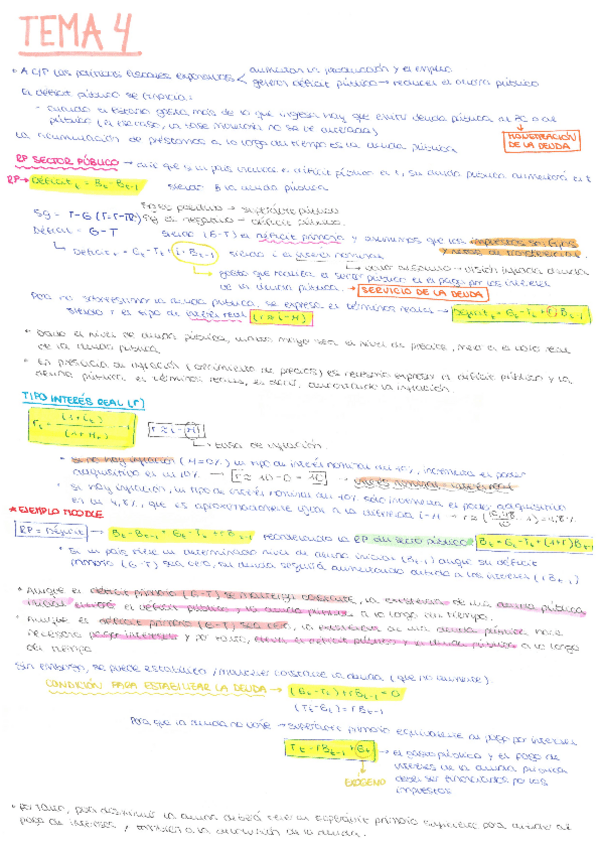 TEMA 4
• A C/P las políticas fiscales expansivas < aumentan la producción y el empleo
generan déficit público → reducen el ahorro público
El déficit público se financia:
- cuando el Estado gasta más de lo que ingresa hay que emitir deuda pública
La acumulación de préstamos a lo largo del tiempo es la deuda pública.
MONETIZACIÓN DE LA DEUDA
RP SECTOR PÚBLICO → dice que si un país incurre en déficit público en t, su deuda pública aumentará en t
RP → Déficit t = Bt - Bt-1 siendo B la deuda pública
Si es positivo → superávit público
Sg = T-G Si es negativo → déficit público
Déficit = G-T siendo (G-T) el déficit primario y asumimos que los impuestos son fijos
Déficit t = Gt - Tt + i · Bt-1 siendo i el interés nominal
gasto que realiza el sector público en el pago por los intereses
de la deuda pública. → SERVICIO DE LA DEUDA
Para no sobreestimar la deuda pública, se expresa en términos reales → Déficit t = Gt - Tt + r Bt-1
siendo r el tipo de interés real
• Dado el nivel de deuda pública, cuanto mayor sea el nivel de precios, menor es el valor real
de la deuda pública.
• En presencia de inflación (crecimiento de precios) es necesario expresar el déficit público y la
deuda pública en términos reales, es decir, descontando la inflación.
TIPO INTERÉS REAL (r)
tasa de inflación
• Si no hay inflación un tipo de interés nominal del 10%, incrementa el poder
adquisitivo en un 10%
• Si hay inflación, un tipo de interés nominal del 10% sólo incrementa el poder adquisitivo
en un 4,8%, que es aproximadamente igual a la diferencia
* EJEMPLO MOODLE
RP = Déficit → Bt - Bt-1 = Gt - Tt + rBt-1 reordenando la RP del sector público Bt = Gt - Tt + (1+r)Bt-1
• Si un país tiene un determinado nivel de deuda inicial (Bt-1) aunque su déficit
primario (G-T) sea cero, su deuda seguirá aumentando debido a los intereses (rBt-1)
• Aunque el déficit primario (G-T) se mantenga constante, la existencia de una deuda pública
inicial el déficit público y la deuda pública a lo largo del tiempo.
• Aunque el déficit primario (G-T) sea cero, la existencia de una deuda pública hace
necesario pagar intereses y por tanto, el déficit público y la deuda pública a lo largo
del tiempo
Sin embargo, se puede estabilizar / mantener constante la deuda (que no aumente)
CONDICIÓN PARA ESTABILIZAR LA DEUDA → (Gt-Tt)+rBt-1 = 0
(Tt-Gt) = rBt-1
Para que la deuda no varíe → superávit primario equivalente al pago por intereses
Tt = rBt-1 + Gt → el gasto público y el pago de
intereses de la deuda pública
EXÓGENO deben ser financiados por los
impuestos
• Por tanto, para disminuir la deuda deberá tener un superávit primario suficiente para
pago de intereses y la devolución de la deuda.